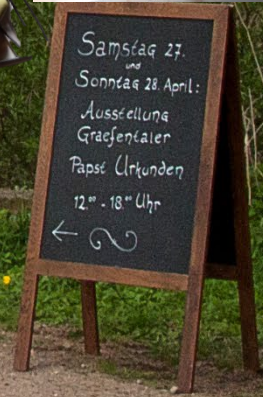 Samstag 27.
und
Sonntag 28. April:
Ausstellung
Graefentaler
Papst Urkunden
12.00 - 18.00 Uhr